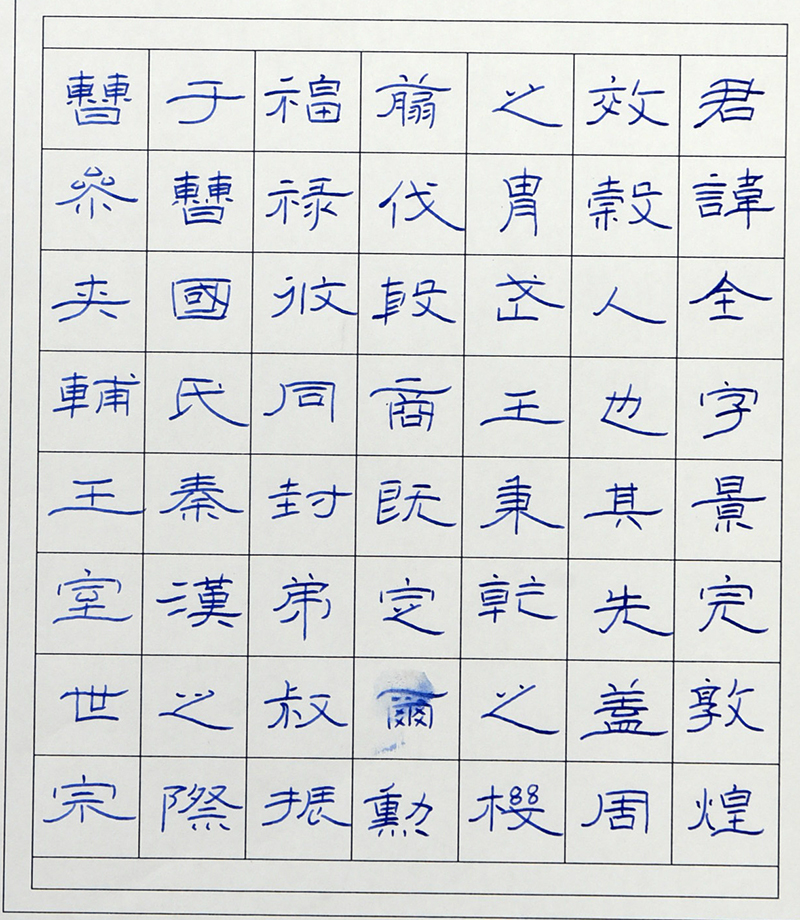 君諱全字景完敦煌
效穀人也其先蓋周
之胄武王秉乾之機
翦伐殷商既定爾勳
福禄攸同封弟叔振
于曹國氏秦漢之際
曹參夾輔王室世宗